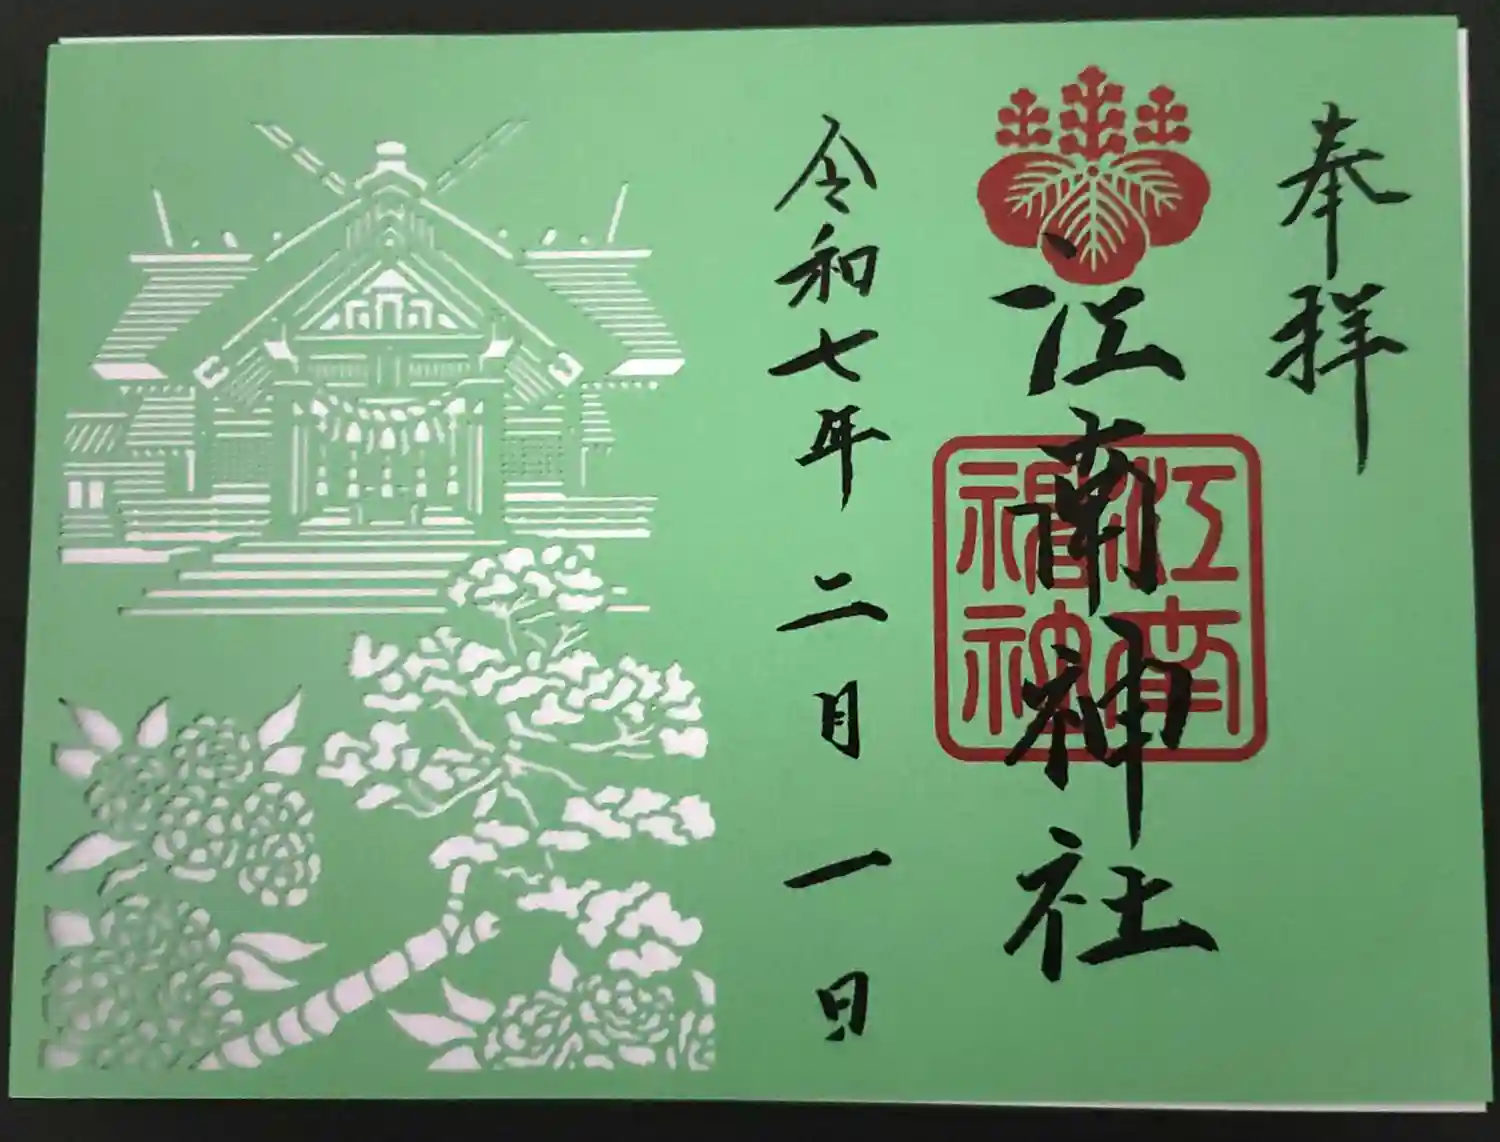 奉拝
江南神社
江南神社
令和七年二月一日